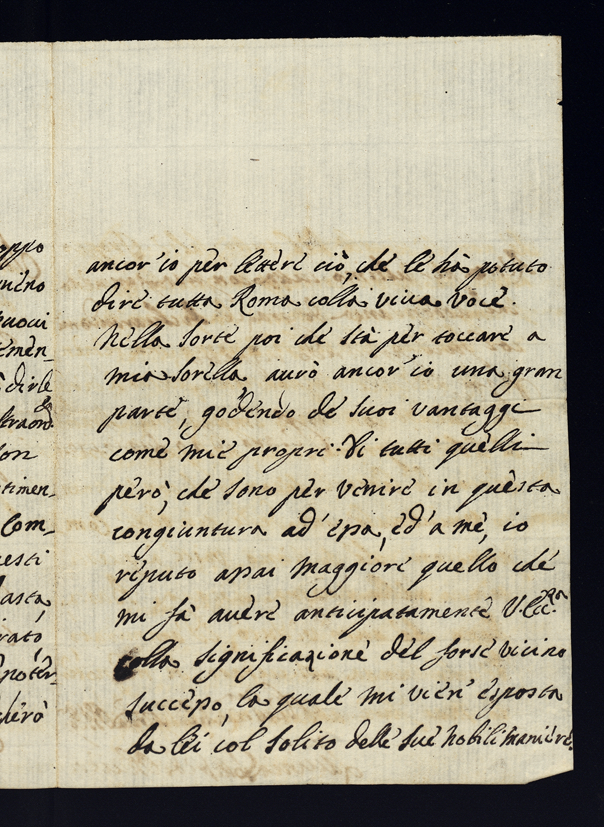 oppo
meno
nuoui
temen-
dirle
straord
son
timen-
Com-
uesti
asta
rato
poter-
cherò
ancor'io per lettere ciò, che le hà potuto
dire tutta Roma colla viua voce.
Nella sorte poi che stà per toccare a
mia sorella aurò ancor'io una gran
parte, godendo de suoi vantaggi
come miei propri. Di tutti quelli
però, che sono per venire in questa
congiuntura ad' essa, ed' a me, io
reputo assai maggiore quello che
mi fà auere anticipatamente V. Ecc.za
colla significazione del forse vicino
successo, la quale mi vien' esposta
da lei col solito delle sue nobili maniere